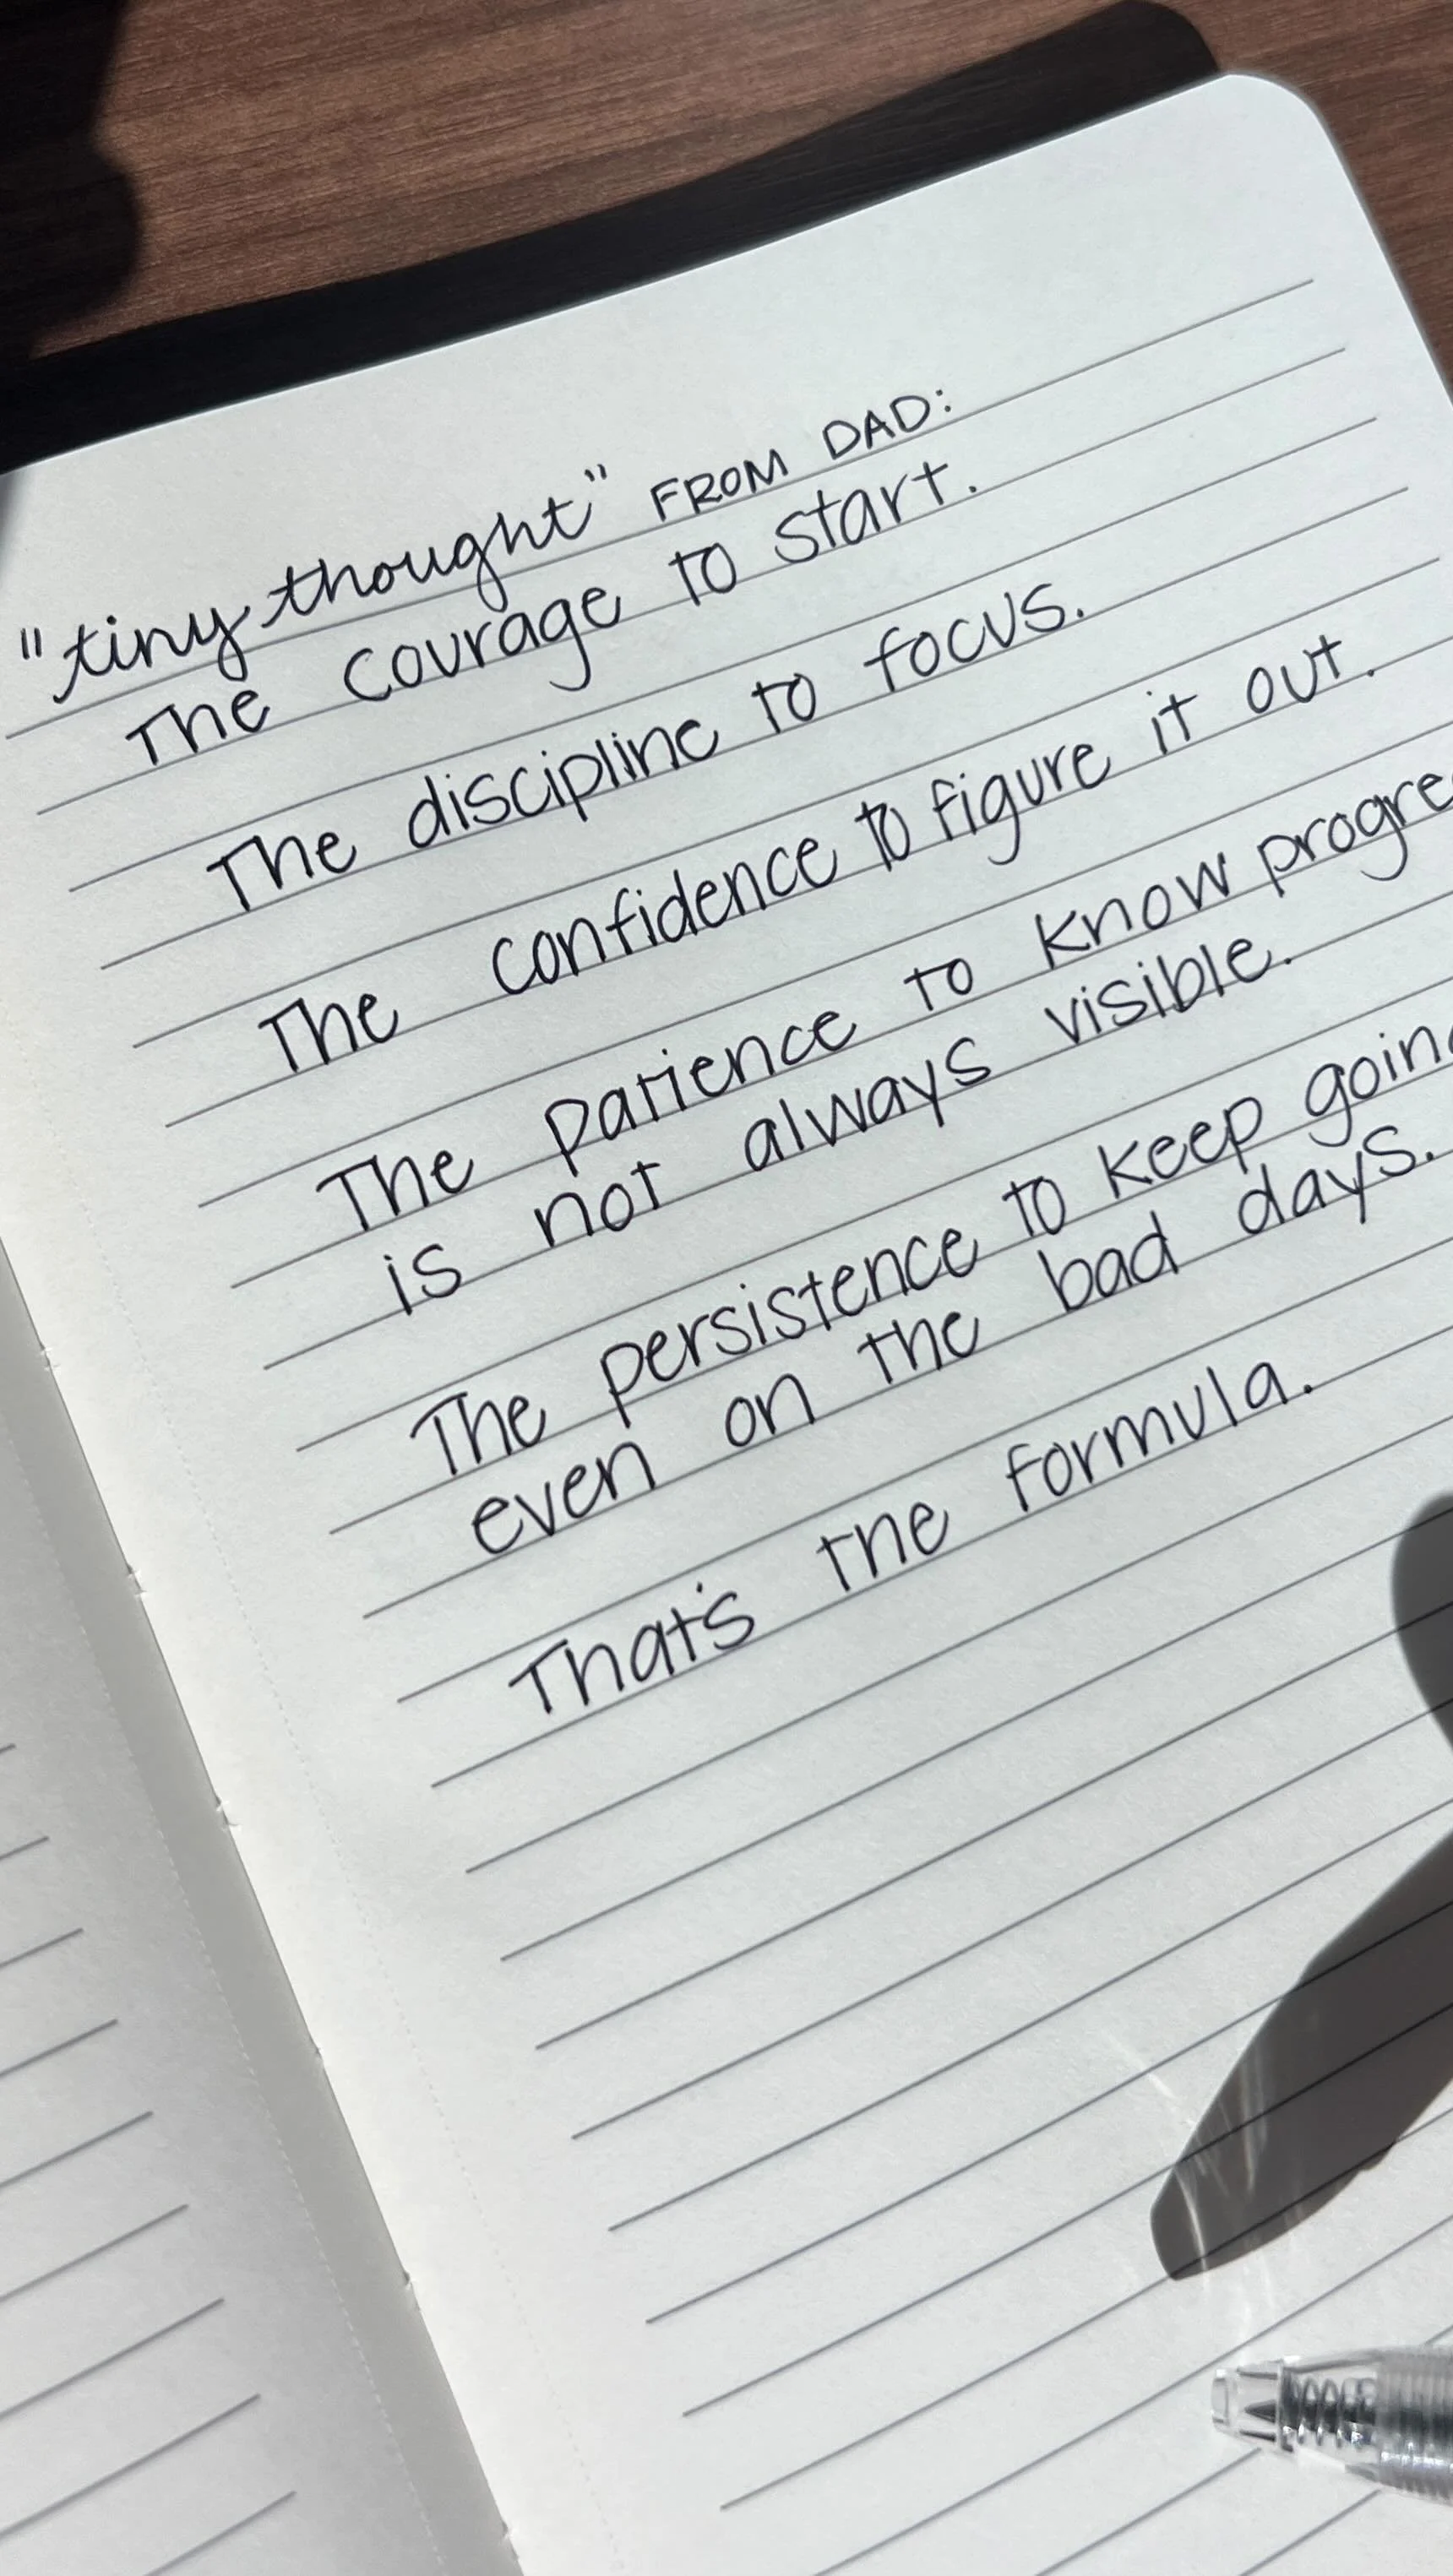 "tiny thought" FROM DAD:
The courage to start.
The discipline to focus.
The confidence to figure it out.
The patience to know progre
is not always visible.
The persistence to keep goin
even on the bad days.
That's the formula.